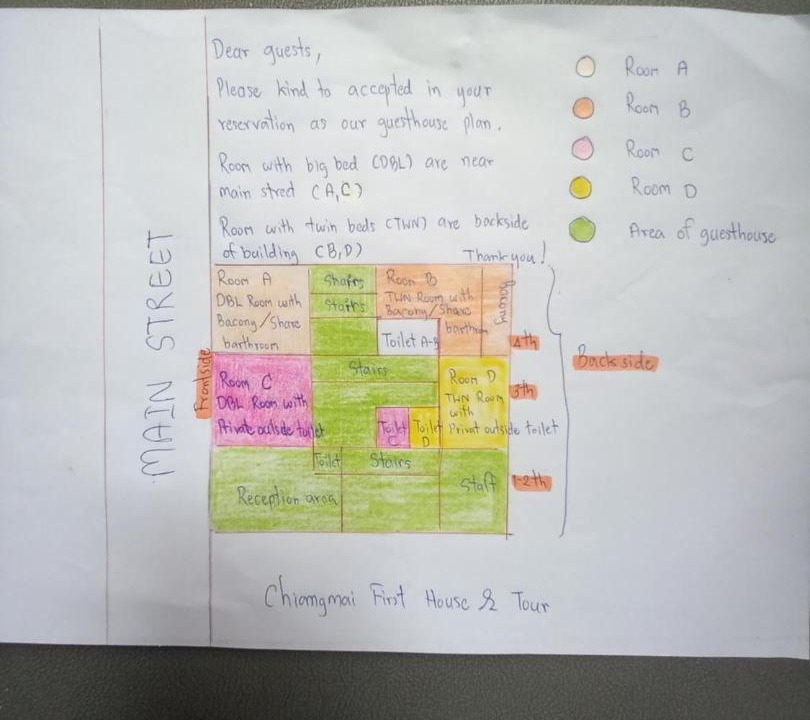 Dear guests,
Please kind to accepted in your
reservation as our guesthouse plan.
Room with big bed (DBL) are near
main stred (A,C)
Room with twin beds (TWN) are backside
of building (B,D)
Thank you!
Room A
Room B
Room C
Room D
Area of guesthouse
MAIN STREET
Frontside
Room A
DBL Room with
Bacony/Share
barthroom
Stairs
Stairs
Room B
TWN Room with
Bacony/Share
barthroom
Bacony
Toilet A-B
4th
Room C
DBL Room with
Private outside toilet
Stairs
Toilet
C
Toilet
D
Room D
TWN Room
with
Privat outside toilet
3th
Back side
Toilet
Stairs
Reception area
Staff
1-2th
Chiangmai First House & Tour